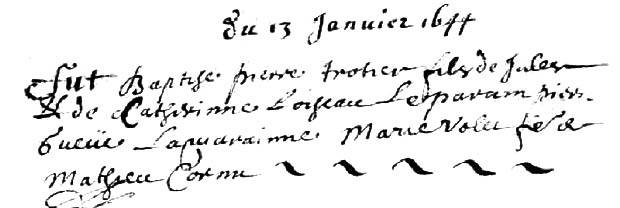 du 13 Janvier 1644
fut Baptise pierre trotier fils de Jules
& de Catherinne Loiseau Le param pier.
Gueüe La marainne Marie Volu fe de
Mathieu Cornu